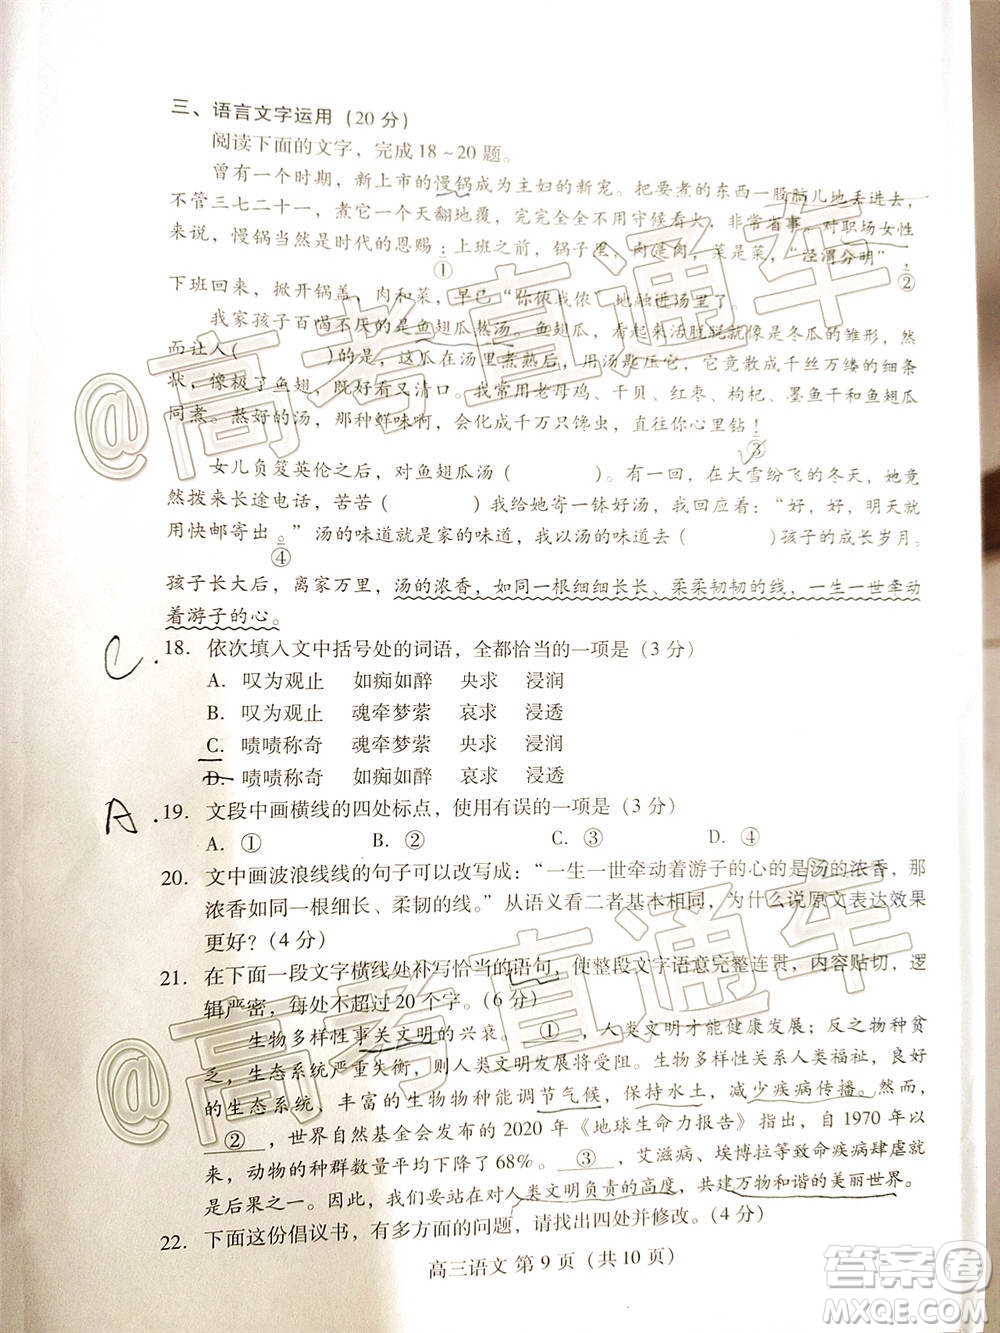 三、语言文字运用（20 分）
阅读下面的文字，完成 18～20 题。
曾有一个时期，新上市的慢锅成为主妇的新宠。把要煮的东西一股脑儿地丢进去，
不管三七二十一，煮它一个天翻地覆，完完全全不用守候看火，非常省事。对职场女性
来说，慢锅当然是时代的恩赐：上班之前，锅子里，肉是肉，菜是菜，“泾渭分明”
① ②
下班回来，掀开锅盖，肉和菜，早已“你侬我侬”地融进汤里了。
我家孩子百喝不厌的是鱼翅瓜熬汤。鱼翅瓜，看起来活脱脱就像是冬瓜的雏形，然
而让人（ ）的是，鱼翅瓜在汤里煮熟后，用汤匙压它，它竟散成千丝万缕的细条
状，像极了鱼翅，既好看又清口。我常用老母鸡、干贝、红枣、枸杞、墨鱼干和鱼翅瓜
同煮。熬好的汤，那种鲜味啊，会化成千万只馋虫，直往你心里钻！
③
女儿负笈英伦之后，对鱼翅瓜汤（ ）。有一回，在大雪纷飞的冬天，她竟
然拨来长途电话，苦苦（ ）我给她寄一钵好汤，我说：“好，好，明天就
用快邮寄出。”汤的味道就是家的味道，如果以汤的味道去（ ）孩子的成长岁月。
④
孩子长大后，离家万里，汤的浓香，如同一根细细长长、柔柔韧韧的线，一生一世牵动
着游子的心。
C.
18. 依次填入文中括号处的词语，全都恰当的一项是（3 分）
A. 叹为观止 如痴如醉 央求 浸润
B. 叹为观止 魂牵梦萦 哀求 浸透
C. 啧啧称奇 魂牵梦萦 央求 浸润
D. 啧啧称奇 如痴如醉 哀求 浸透
A.
19. 文段中画横线的四处标点，使用有误的一项是（3 分）
A. ① B. ② C. ③ D. ④
20. 文中画波浪线线的句子可以改写成：“一生一世牵动着游子的心的是汤的浓香，那
浓香如同一根细长、柔韧的线。”从语义看二者基本相同，为什么说原文表达效果
更好？（4 分）
21. 在下面一段文字横线处补写恰当的语句，使整段文字语意完整连贯，内容贴切，逻
辑严密，每处不超过 20 个字。（6 分）
生物多样性事关文明的兴衰。 ① ，人类文明才能健康发展；反之物种贫
乏，生态系统严重失衡，则人类文明发展将受阻。生物多样性关系人类福祉，良好
的生态系统、丰富的生物物种能调节气候，保持水土，减少疾病传播。然而，
② ，世界自然基金会发布的 2020 年《地球生命力报告》指出，自 1970 年以
来，动物的种群数量平均下降了 68%。 ③ ，艾滋病、埃博拉等致命疾病肆虐就
是后果之一。因此，我们要站在对人类文明负责的高度，共建万物和谐的美丽世界。
22. 下面这份倡议书，有多方面的问题，请找出四处并修改。（4 分）
高三语文 第 9 页（共 10 页）
@高考直通车
@高考直通车
答案圈
MXQE.COM